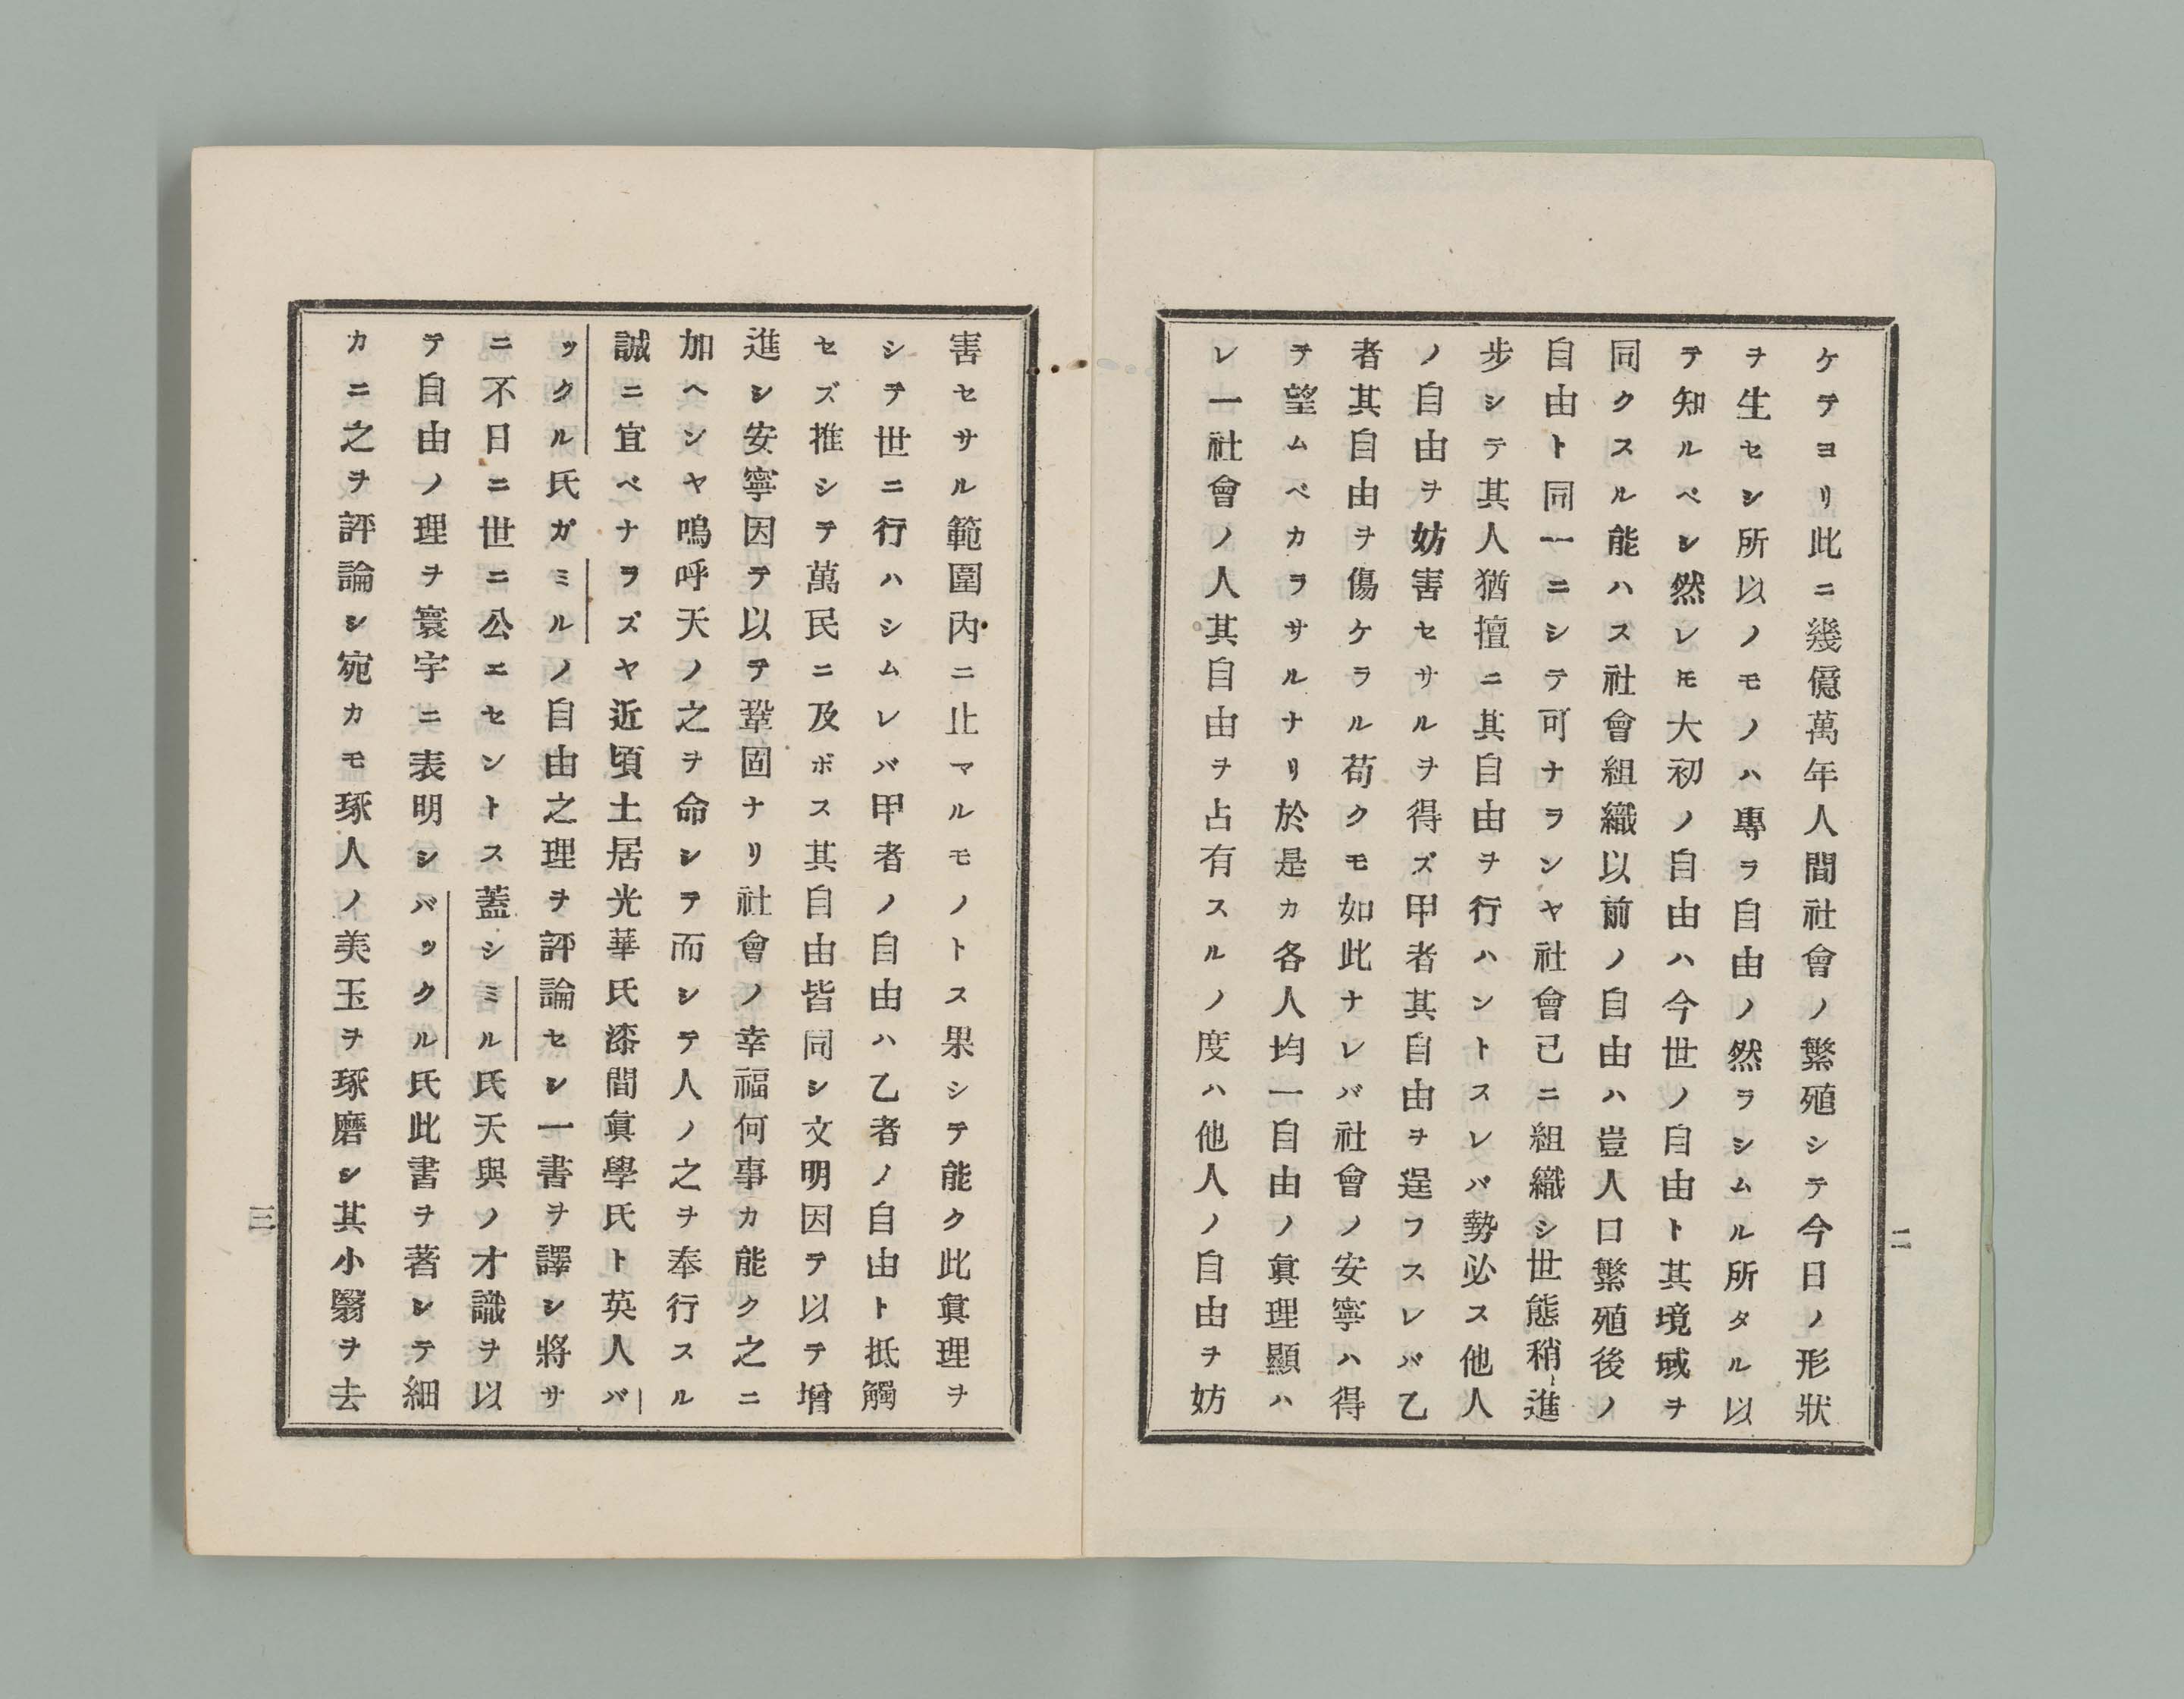 ケテヨリ此ニ幾億萬年人間社會ノ繁殖シテ今日ノ形狀
ヲ生セシ所以ノモノハ專ラ自由ノ然ラシムル所タル以
テ知ルベシ然レ𪜈大初ノ自由ハ今世ノ自由ト其境域ヲ
同クスル能ハス社會組織以前ノ自由ハ豈人口繁殖後ノ
自由ト同一ニシテ可ナランヤ社會已ニ組織シ世態稍進
步シテ其人猶擅ニ其自由ヲ行ハントスレバ勢必ス他人
ノ自由ヲ妨害セサルヲ得ズ甲者其自由ヲ逞フスレバ乙
者其自由ヲ傷ケラル苟クモ如此ナレバ社會ノ安寧ハ得
テ望ムベカラサルナリ於是カ各人均一自由ノ眞理顯ハ
レ一社會ノ人其自由ヲ占有スルノ度ハ他人ノ自由ヲ妨
二
害セサル範圍內ニ止マルモノトス果シテ能ク此眞理ヲ
シテ世ニ行ハシムレバ甲者ノ自由ハ乙者ノ自由ト抵觸
セズ推シテ萬民ニ及ボス其自由皆同シ文明因テ以テ增
進シ安寧因テ以テ鞏固ナリ社會ノ幸福何事カ能ク之ニ
加ヘンヤ嗚呼天ノ之ヲ命シテ而シテ人ノ之ヲ奉行スル
誠ニ宜ベナラズヤ近頃土居光華氏漆間眞學氏ト英人バ
ックル氏ガミルノ自由之理ヲ評論セシ一書ヲ譯シ將サ
ニ不日ニ世ニ公エセントス蓋シミル氏天與ノ才識ヲ以
テ自由ノ理ヲ寰宇ニ表明シバックル氏此書ヲ著シテ細
カニ之ヲ評論シ宛カモ琢人ノ美玉ヲ琢磨シ其小翳ヲ去
三